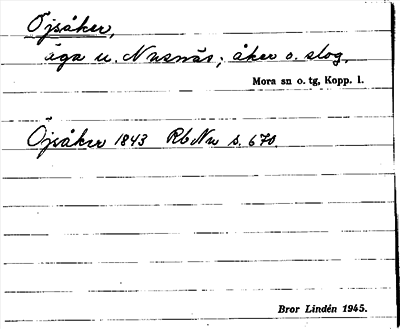 Öjsåker,
äga u. Nusnäs; åker o. slog.
Mora sn o. tg, Kopp. l.
Öjsåker 1843 RbNu s. 670.
Bror Lindén 1945.